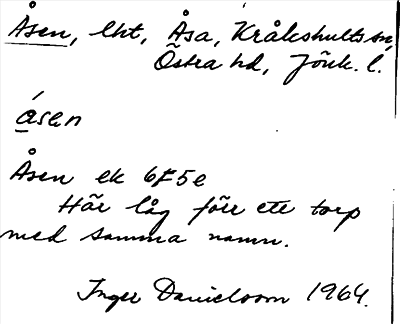 Åsen, lht, Åsa, Kråkshults sn,
Östra hd, Jönk. l.
åsen
Åsen ek 6F5e
Här låg förr ett torp
med samma namn.
Inger Danielsson 1964.